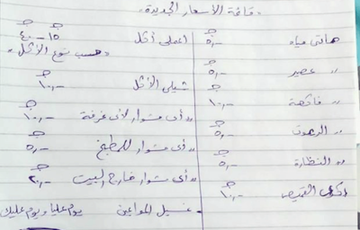 قائمة الأسعار الجديدة
هاتى مياه ٥,-
" عصير ٥,-
" فاكهة ١٠,-
" الريموت ٥,-
" النظارة ٥,-
القميص ١٠,-
اعملى أكل ١٥ - ٤٠
"حسب نوع الأكل"
شيلى الأكل ١٠,-
" أى مشوار لأى غرفة ١٠,-
" أى مشوار للمطبخ ٥,-
" أى مشوار خارج البيت ٢٠,-
غسيل المواعين يوم عليا ويوم عليك